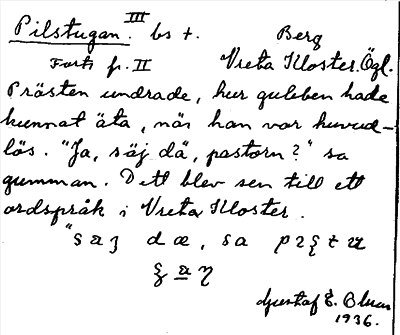 Pilstugan. III bs t. Berg
Forts fr. II Vreta Kloster. Ögl.
Prästen undrade, hur guleben hade
kunnat äta, när han var huvud-
lös. "Ja, säj dä, pastorn?" sa
gumman. Dett blev sen till ett
ordspråk i Vreta Kloster.
"saȝ dæ, sa
Gustaf E. Blum
1936.